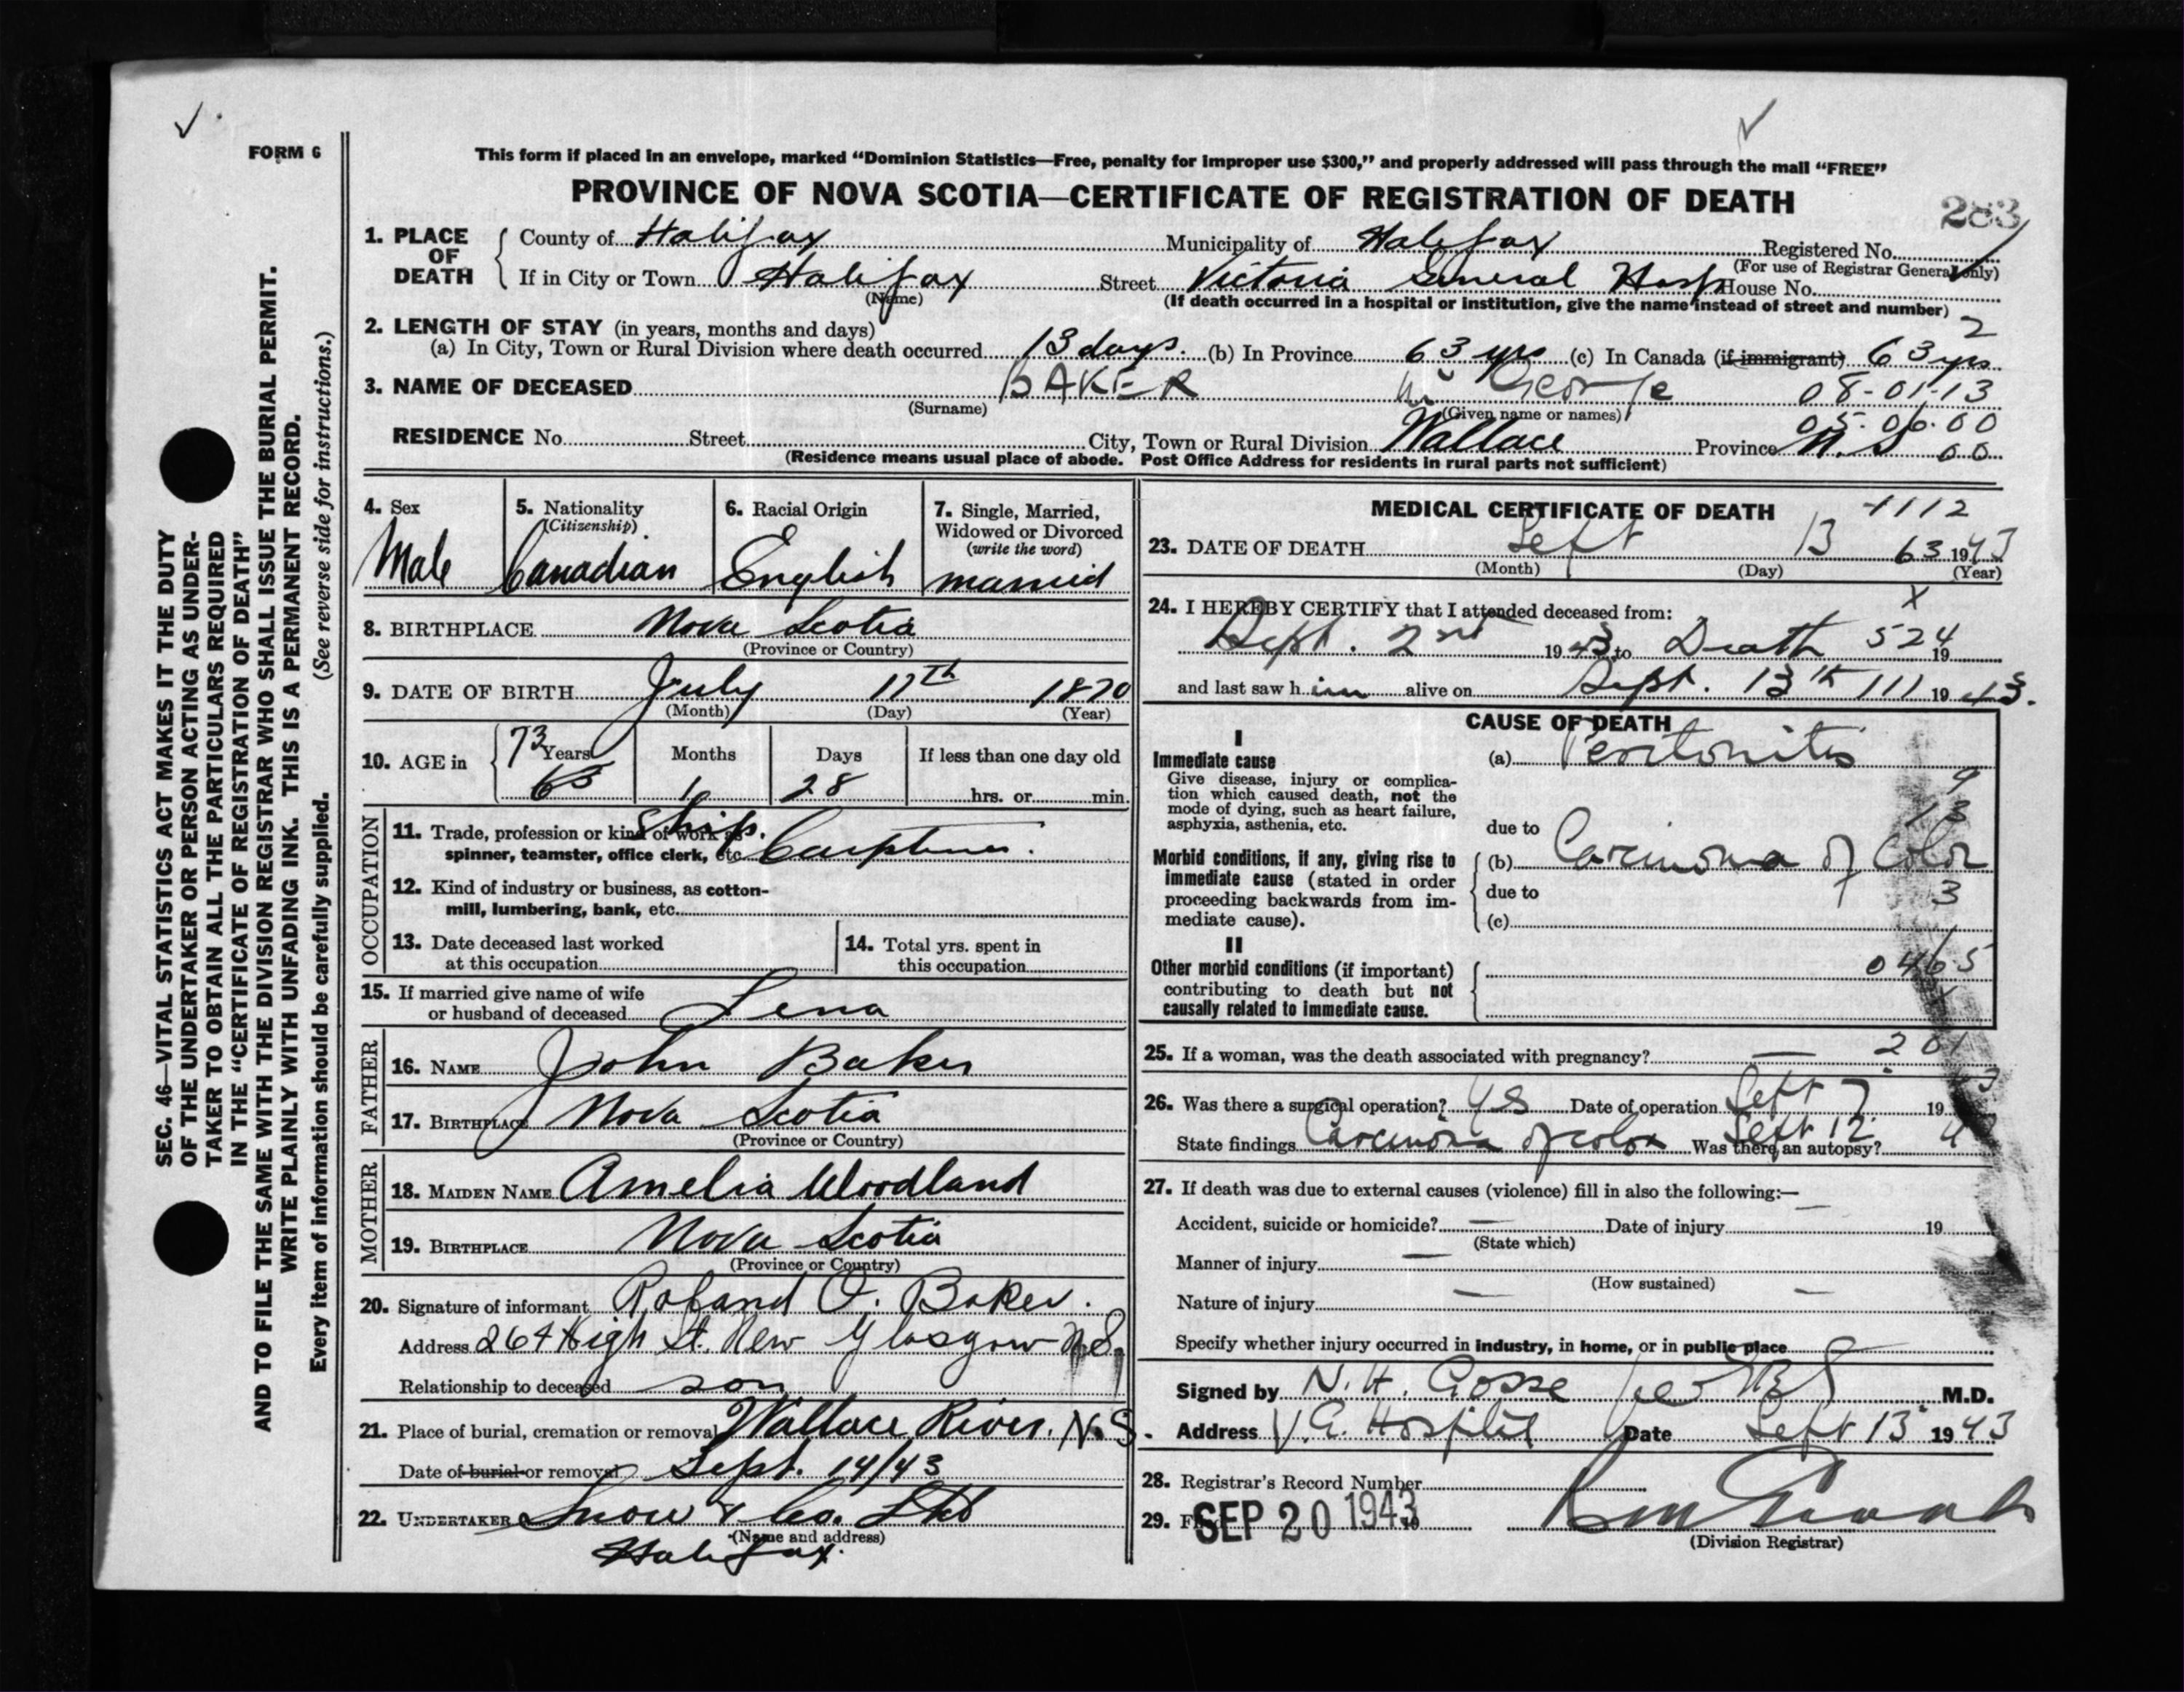 FORM 6
This form if placed in an envelope, marked “Dominion Statistics—Free, penalty for improper use $300,” and properly addressed will pass through the mail “FREE”
PROVINCE OF NOVA SCOTIA—CERTIFICATE OF REGISTRATION OF DEATH
283
1. PLACE OF DEATH
County of Halifax Municipality of Halifax Registered No.
(For use of Registrar General only)
If in City or Town Halifax Street Victoria General Hosp House No.
(Name) (If death occurred in a hospital or institution, give the name instead of street and number)
2
2. LENGTH OF STAY (in years, months and days)
(a) In City, Town or Rural Division where death occurred 13 days. (b) In Province 63 yrs (c) In Canada (if immigrant) 63 yrs
3. NAME OF DECEASED BAKER George 08-01-13
(Surname) (Given name or names)
05-06-00
RESIDENCE No. Street City, Town or Rural Division Wallace Province N.S 00
(Residence means usual place of abode. Post Office Address for residents in rural parts not sufficient)
4. Sex
Male
5. Nationality
(Citizenship)
Canadian
6. Racial Origin
English
7. Single, Married, Widowed or Divorced
(write the word)
married
8. BIRTHPLACE Nova Scotia
(Province or Country)
9. DATE OF BIRTH July 17th 1870
(Month) (Day) (Year)
10. AGE in
73 Years Months Days If less than one day old
63 1 28 hrs. or min.
OCCUPATION
11. Trade, profession or kind of work as Ship.
spinner, teamster, office clerk, etc. Carpenter.
12. Kind of industry or business, as cotton-
mill, lumbering, bank, etc.
13. Date deceased last worked
at this occupation
14. Total yrs. spent in
this occupation
15. If married give name of wife
or husband of deceased Lena
FATHER
16. NAME John Baker
17. BIRTHPLACE Nova Scotia
(Province or Country)
MOTHER
18. MAIDEN NAME Amelia Woodland
19. BIRTHPLACE Nova Scotia
(Province or Country)
20. Signature of informant Roland O. Baker.
Address 264 High St. New Glasgow N.S.
Relationship to deceased son
21. Place of burial, cremation or removal Wallace River. N.S.
Date of burial or removal Sept. 14/43
22. UNDERTAKER Snow & Co. Ltd
(Name and address)
Halifax.
MEDICAL CERTIFICATE OF DEATH 1112
23. DATE OF DEATH Sept 13 63 1943
(Month) (Day) (Year)
24. I HEREBY CERTIFY that I attended deceased from: X
Sept. 2nd 1943 to Death 524 19
and last saw him alive on Sept. 13th 111 1943.
CAUSE OF DEATH
I
Immediate cause
Give disease, injury or complica-
tion which caused death, not the
mode of dying, such as heart failure,
asphyxia, asthenia, etc.
(a) Peritonitis
9
13
due to
Morbid conditions, if any, giving rise to
immediate cause (stated in order
proceeding backwards from im-
mediate cause).
(b) Carcinoma of Colon
due to 3
(c)
II
Other morbid conditions (if important)
contributing to death but not
causally related to immediate cause.
0465
25. If a woman, was the death associated with pregnancy? — 201
26. Was there a surgical operation? Yes Date of operation Sept 7 19
Sept 12
State findings Carcinoma of colon Was there an autopsy?
27. If death was due to external causes (violence) fill in also the following:—
Accident, suicide or homicide? — Date of injury — 19
(State which)
Manner of injury —
(How sustained)
Nature of injury — —
Specify whether injury occurred in industry, in home, or in public place
Signed by N. H. Gosse M.D.
Address V.G. Hospital Date Sept 13 1943
28. Registrar's Record Number
29. SEP 20 1943
(Division Registrar)
SEC. 46—VITAL STATISTICS ACT MAKES IT THE DUTY
OF THE UNDERTAKER OR PERSON ACTING AS UNDER-
TAKER TO OBTAIN ALL THE PARTICULARS REQUIRED
IN THE “CERTIFICATE OF REGISTRATION OF DEATH”
AND TO FILE THE SAME WITH THE DIVISION REGISTRAR WHO SHALL ISSUE THE BURIAL PERMIT.
WRITE PLAINLY WITH UNFADING INK. THIS IS A PERMANENT RECORD.
Every item of information should be carefully supplied. (See reverse side for instructions.)